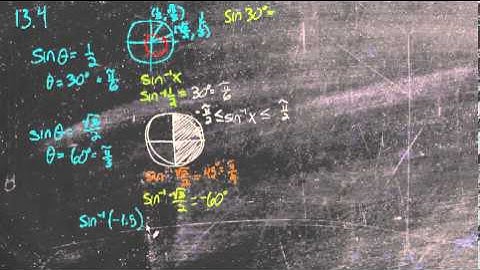 13.4
sin 30° =
sin θ = 1/2
θ = 30° = π/6
sin⁻¹ x
sin⁻¹ 1/2 = 30° = π/6
-π/2 ≤ sin⁻¹ x ≤ π/2
sin θ = √3/2
θ = 60° = π/3
sin⁻¹ √2/2 = 45° = π/4
sin⁻¹ -√3/2 = -60°
sin⁻¹ (-1.5)